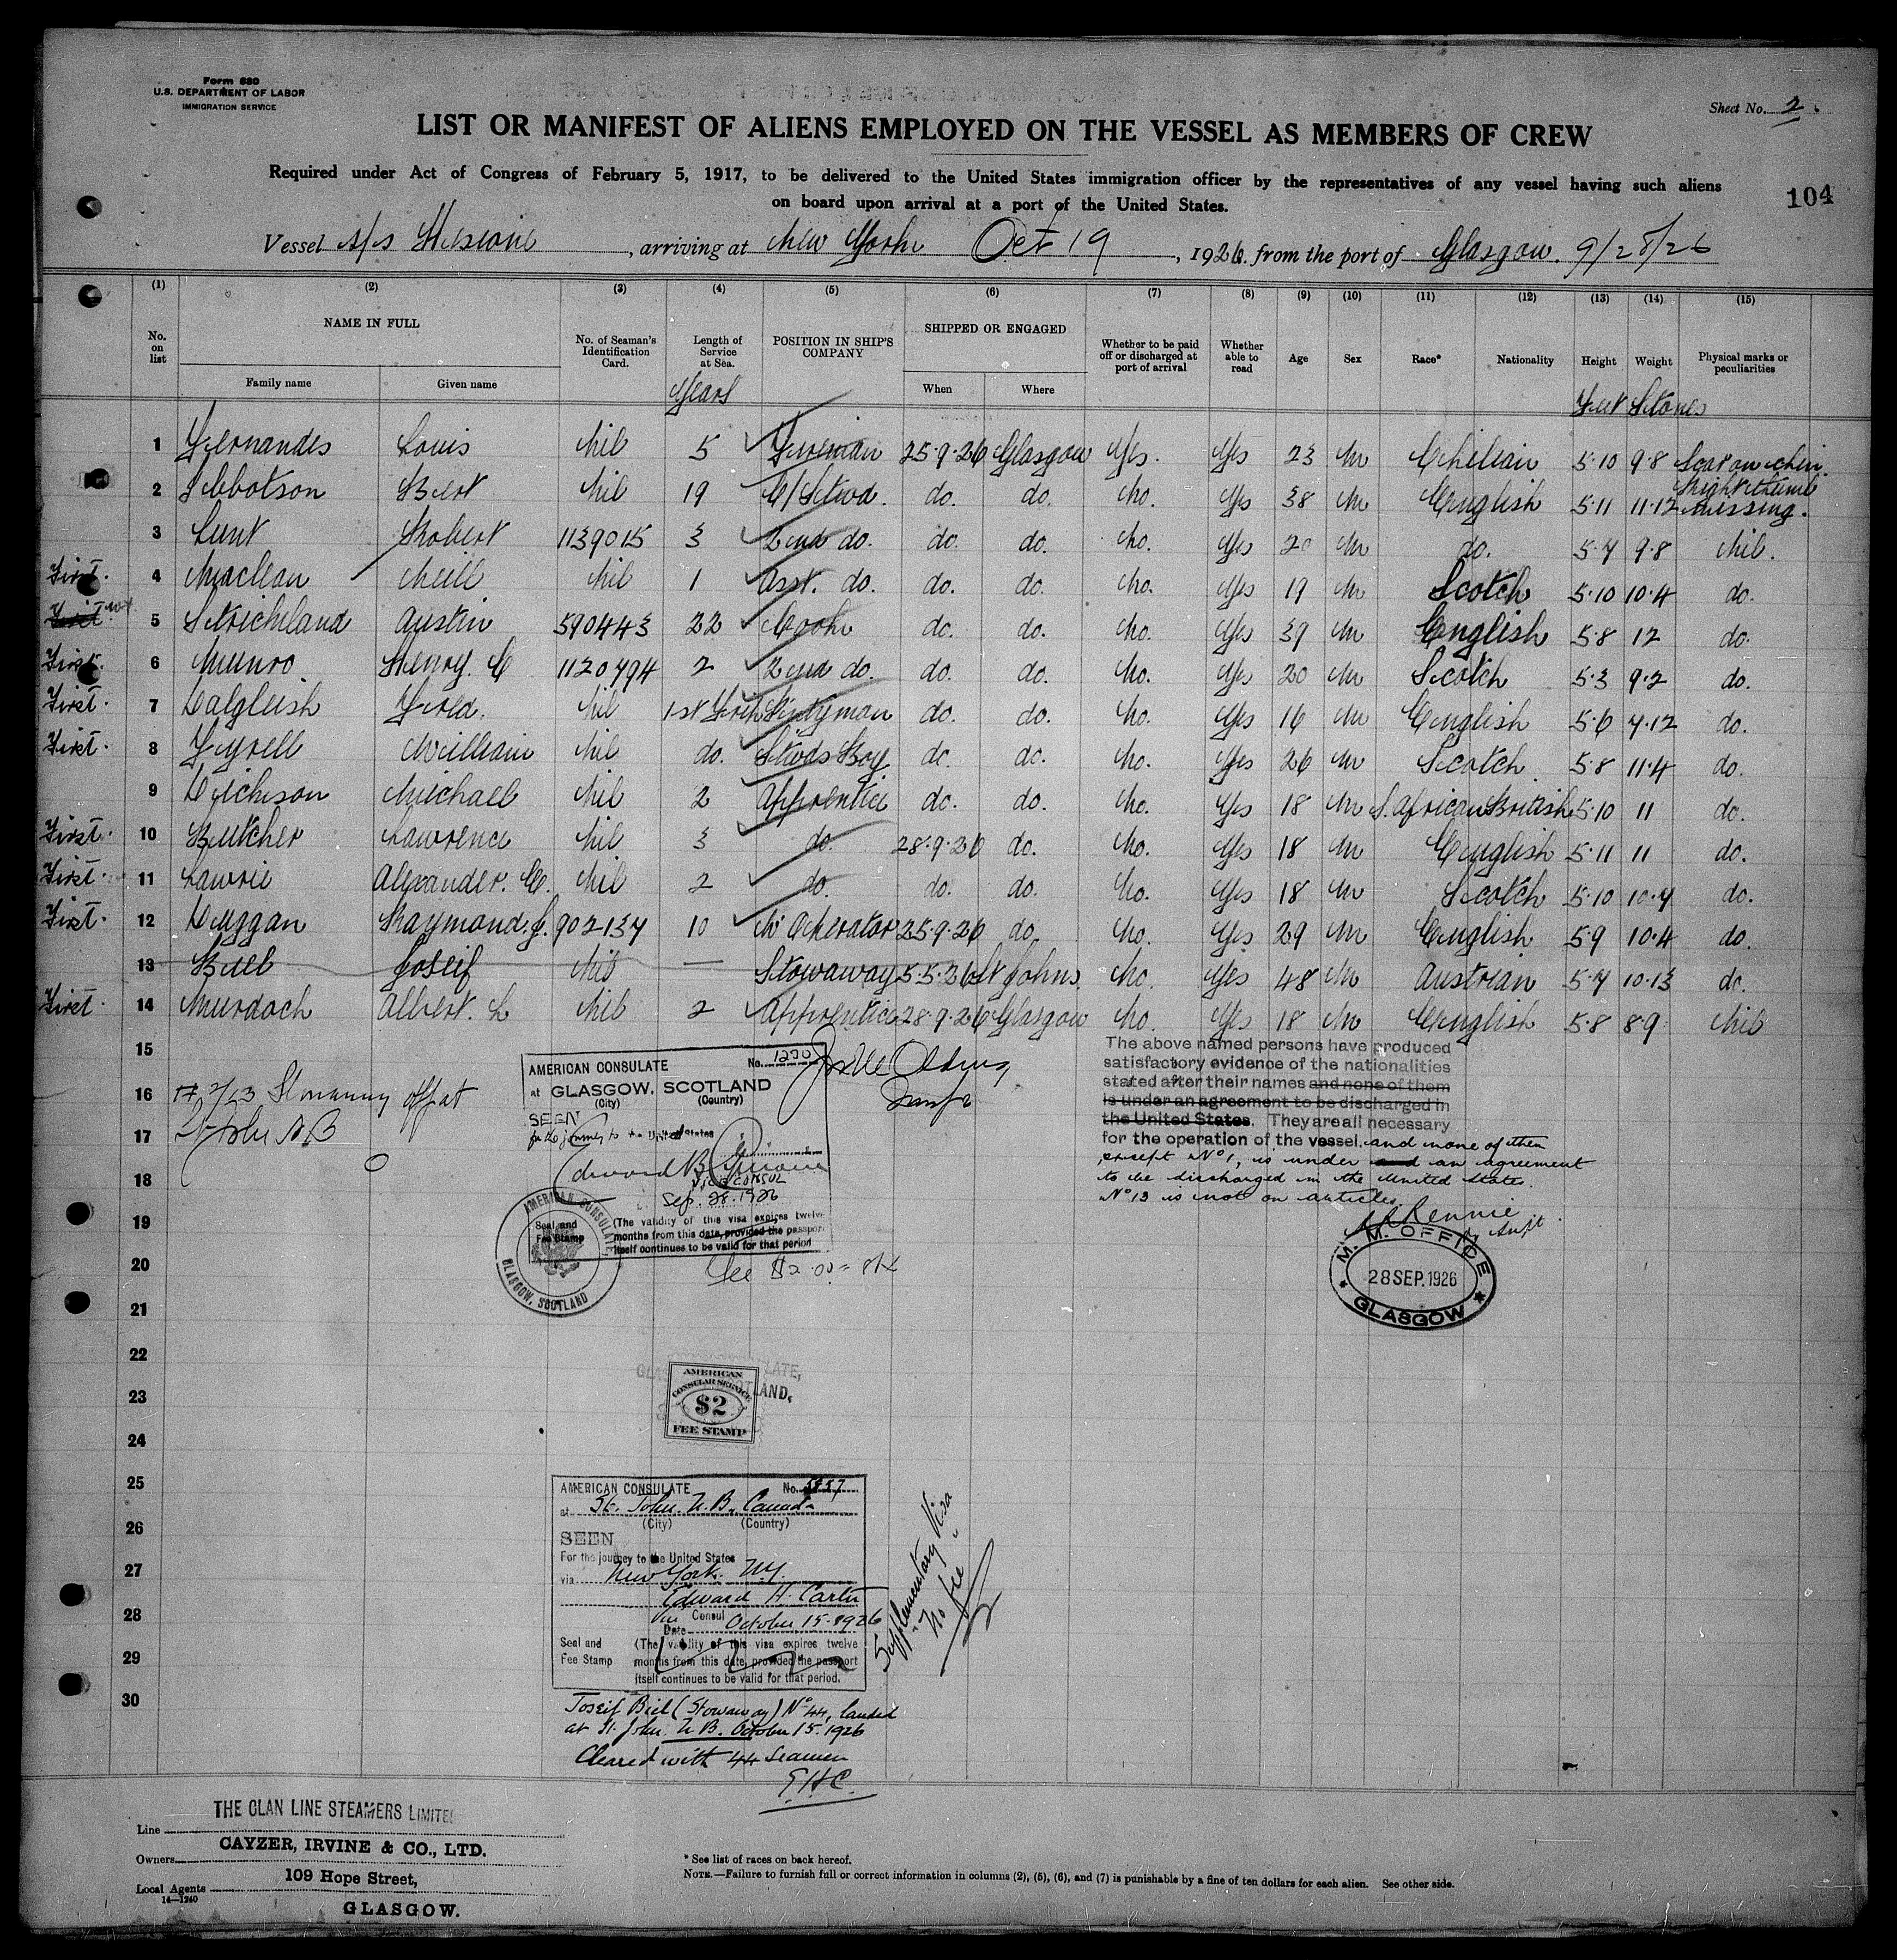 Form 680
U.S. DEPARTMENT OF LABOR
IMMIGRATION SERVICE
Sheet No. 2
LIST OR MANIFEST OF ALIENS EMPLOYED ON THE VESSEL AS MEMBERS OF CREW
Required under Act of Congress of February 5, 1917, to be delivered to the United States immigration officer by the representatives of any vessel having such aliens
on board upon arrival at a port of the United States.
104
Vessel s/s, arriving at New York Oct 19, 1926. from the port of Glasgow. 9/28/26
(1) (2) (3) (4) (5) (6) (7) (8) (9) (10) (11) (12) (13) (14) (15)
No. on list NAME IN FULL Family name Given name No. of Seaman's Identification Card. Length of Service at Sea. POSITION IN SHIP'S COMPANY SHIPPED OR ENGAGED When Where Whether to be paid off or discharged at port of arrival Whether able to read Age Sex Race* Nationality Height Weight Physical marks or peculiarities
Years Feet Stones
1 Fernandes Louis Nil 5 Fireman 25.9.26 Glasgow Yes. Yes 23 M Chilian 5.10 9.8 Scar on chin.
2 Ibbotson Bert Nil 19 C/Stwd. do. do. No. Yes 38 M English 5.11 11.12 Right thumb missing.
3 Lunt Robert 1139015 3 2nd do. do. do. No. Yes 20 M do. 5.7 9.8 Nil.
First. 4 Maclean Neill Nil 1 Asst. do. do. do. No. Yes 19 M Scotch 5.10 10.4 do.
First 5 Strickland Austin 590443 22 Cook do. do. No. Yes 39 M English 5.8 12 do.
First. 6 Munro Henry. C 1120794 2 2nd do. do. do. No. Yes 20 M Scotch 5.3 9.2 do.
First. 7 Dalgleish Fred. Nil 1st Trip do. do. No. Yes 16 M English 5.6 7.12 do.
First. 8 Tyrell William Nil do. Stwds Boy do. do. No. Yes 26 M Scotch 5.8 11.4 do.
9 Dickison Michael Nil 2 Apprentice do. do. No. Yes 18 M S. African British 5.10 11 do.
First. 10 Butcher Lawrence Nil 3 do. 28.9.26 do. No. Yes 18 M English 5.11 11 do.
First. 11 Lawrie Alexander. C. Nil 2 do. do. do. No. Yes 18 M Scotch 5.10 10.7 do.
First. 12 Duggan Raymond. J. 902137 10 W. Operator 25.9.26 do. No. Yes 29 M English 5.9 10.4 do.
13 Biel Joseif Nil — Stowaway 5.5.26 St Johns. No. Yes 48 M Austrian 5.7 10.13 do.
First. 14 Murdoch Albert. L Nil 2 Apprentice 28.9.26 Glasgow No. Yes 18 M English 5.8 8.9 Nil
15
16
17
18
19
20
21
22
23
24
25
26
27
28
29
30
Stowaway off at
St John NB
AMERICAN CONSULATE No. 1270
at GLASGOW, SCOTLAND
(City) (Country)
SEEN
for the journey to the United States
Edward B.
VICE CONSUL
Sep. 28. 1926
Seal and Fee Stamp
(The validity of this visa expires twelve
months from this date, provided the passport
itself continues to be valid for that period
AMERICAN CONSULATE, GLASGOW, SCOTLAND
Fee $2.00
The above named persons have produced
satisfactory evidence of the nationalities
stated after their names and none of them
is under an agreement to be discharged in
the United States. They are all necessary
for the operation of the vessel, and none of them
except No 1, is under and an agreement
to be discharged in the United States.
No 13 is not on articles
Rennie
Supt.
M. M. OFFICE
28 SEP. 1926
GLASGOW
AMERICAN
CONSULAR SERVICE
$2
FEE STAMP
AMERICAN CONSULATE No. 5857
at St. John. N. B. Canada
(City) (Country)
SEEN
For the journey to the United States
via New York. N.Y.
Edward H. Carter
Vice Consul
Date October 15. 1926
Seal and Fee Stamp
(The validity of this visa expires twelve
months from this date, provided the passport
itself continues to be valid for that period.
Supplementary Visa
"No fee"
Joseif Biel (Stowaway) No 44, landed
at St. John. N. B. October 15. 1926
Cleared with 44 seamen
E.H.C.
Line THE CLAN LINE STEAMERS LIMITED
Owners CAYZER, IRVINE & CO., LTD.
Local Agents 109 Hope Street,
14—1240
GLASGOW.
* See list of races on back hereof.
NOTE.—Failure to furnish full or correct information in columns (2), (5), (6), and (7) is punishable by a fine of ten dollars for each alien. See other side.